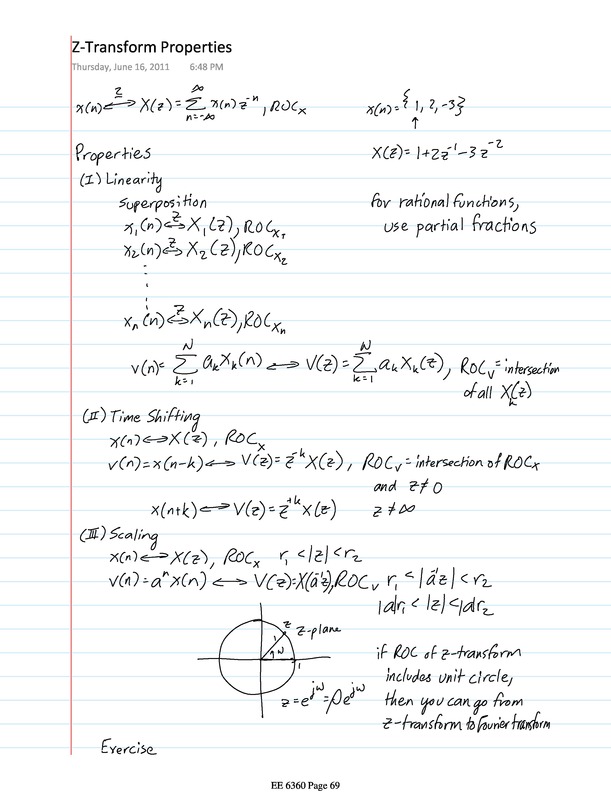 Z-Transform Properties
Thursday, June 16, 2011 6:48 PM
x(n) ⟷^Z X(z) = ∑_{n=-∞}^{∞} x(n) z^{-n}, ROC_X
x(n) = {1, 2, -3}
↑
X(z) = 1+2z^{-1}-3z^{-2}
Properties
(I) Linearity
superposition
for rational functions,
use partial fractions
x_1(n) ⟷^Z X_1(z), ROC_{X_1}
x_2(n) ⟷^Z X_2(z), ROC_{X_2}
x_n(n) ⟷^Z X_n(z), ROC_{X_n}
v(n) = ∑_{k=1}^{N} a_k x_k(n) ⟷ V(z) = ∑_{k=1}^{N} a_k X_k(z), ROC_V = intersection
of all X_k(z)
(II) Time Shifting
x(n) ⟷ X(z), ROC_X
v(n) = x(n-k) ⟷ V(z) = z^{-k} X(z), ROC_V = intersection of ROC_X
and z ≠ 0
x(n+k) ⟷ V(z) = z^{+k} X(z) z ≠ ∞
(III) Scaling
x(n) ⟷ X(z), ROC_X r_1 < |z| < r_2
v(n) = a^n x(n) ⟷ V(z) = X(a^{-1}z), ROC_V r_1 < |a^{-1}z| < r_2
|a|r_1 < |z| < |a|r_2
z
z-plane
1
ω
1
z = e^{jω} = ρe^{jω}
if ROC of z-transform
includes unit circle,
then you can go from
z-transform to Fourier transform
Exercise
EE 6360 Page 69